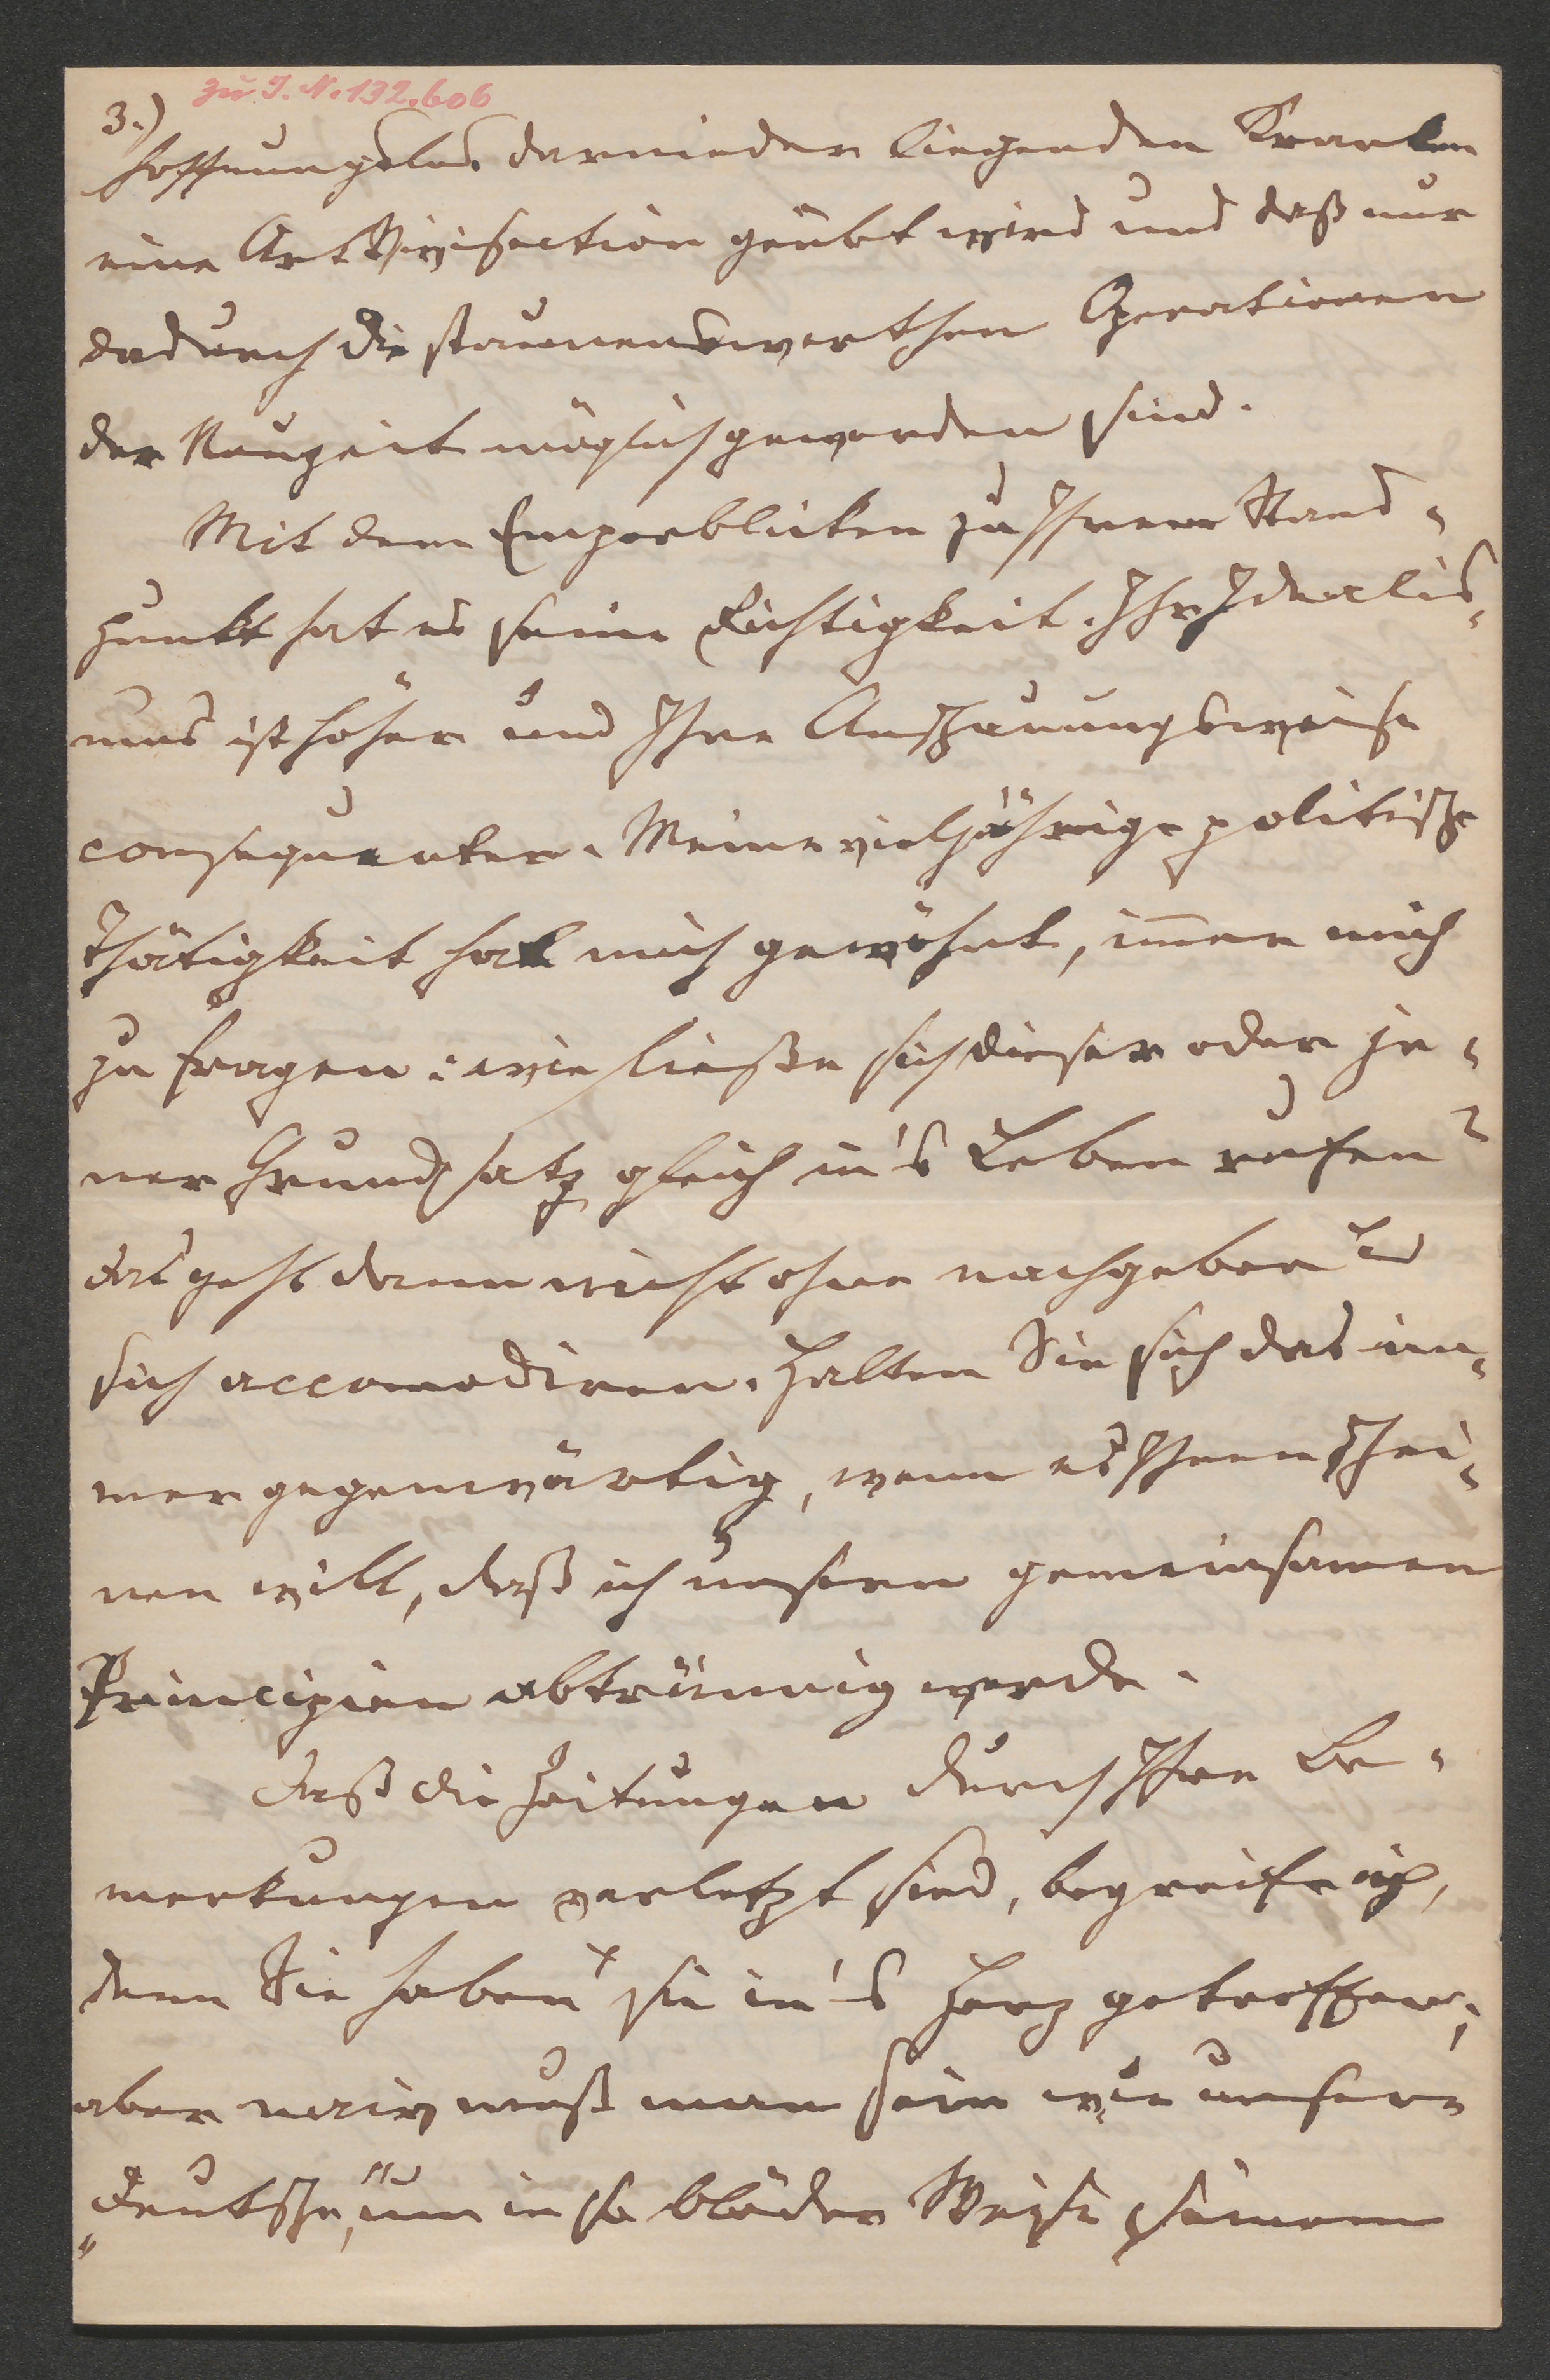 zu I. N. 132.606
3.)
hoffnungslos darnieder liegenden Kranken
eine Art Vivisection geübt wird und daß nur
dadurch die staunenswerthen Operationen
der Neuzeit möglich geworden sind.
Mit dem Emporblicken zu Ihrem Stand-
punkt hat es seine Richtigkeit. Ihr Idealis-
mus ist höher und Ihre Anschauungsweise
consequenter. Meine vieljährige politische
Thätigkeit hat mich gewöhnt, immer mich
zu fragen: wie ließe sich dieser oder je-
ner Grundsatz gleich in's Leben rufen?
das geht dann nicht ohne nachgeben u
sich accomodiren. Halten Sie sich das im-
mer gegenwärtig, wenn es Ihnen schei-
nen will, daß ich unseren gemeinsamen
Principien abtrünnig werde.
Daß die Zeitungen durch Ihre Be-
merkungen verletzt sind, begreife ich,
denn Sie haben sie in's Herz getroffen;
aber naiv muß man sein wie unsere
„Deutsche", um in so blöder Weise seinem